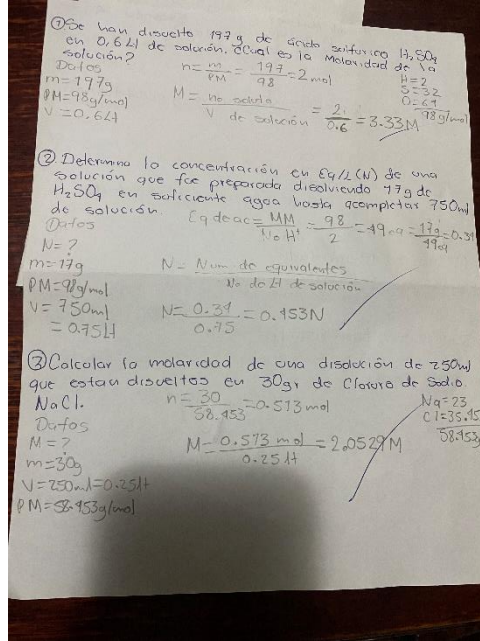 ①Se han disuelto 197 g de ácido sulfurico H₂SO₄
en 0,6 Lt de solución. ¿Cual es la Molaridad de la
solución?
Datos
m=197g
PM=98g/mol
V=0.6Lt
n=m/PM=197/98=2 mol
M=no soluto/V de solución=2/0.6=3.33M
H=2
S=32
O=64
98g/mol
② Determina la concentración en Eq/L(N) de una
solución que fue preparada disolviendo 17g de
H₂SO₄ en suficiente agua hasta acompletar 750ml
de solución.
Eq de ac=MM/No H⁺=98/2=49 eq=17g/49eq=0.34
Datos
N=?
m=17g
PM=98g/mol
V=750ml
=0.75Lt
N=Num de equivalentes/No de Lt de solución
N=0.34/0.75=0.453N
③Calcular la molaridad de una disolución de 250ml
que estan disueltos en 30gr de Cloruro de Sodio.
NaCl.
n=30/58.453=0.513 mol
Na=23
Cl=35.45
58.453g
Datos
M=?
m=30g
V=250ml=0.25Lt
PM=58.453g/mol
M=0.513 mol/0.25lt=2.0529M